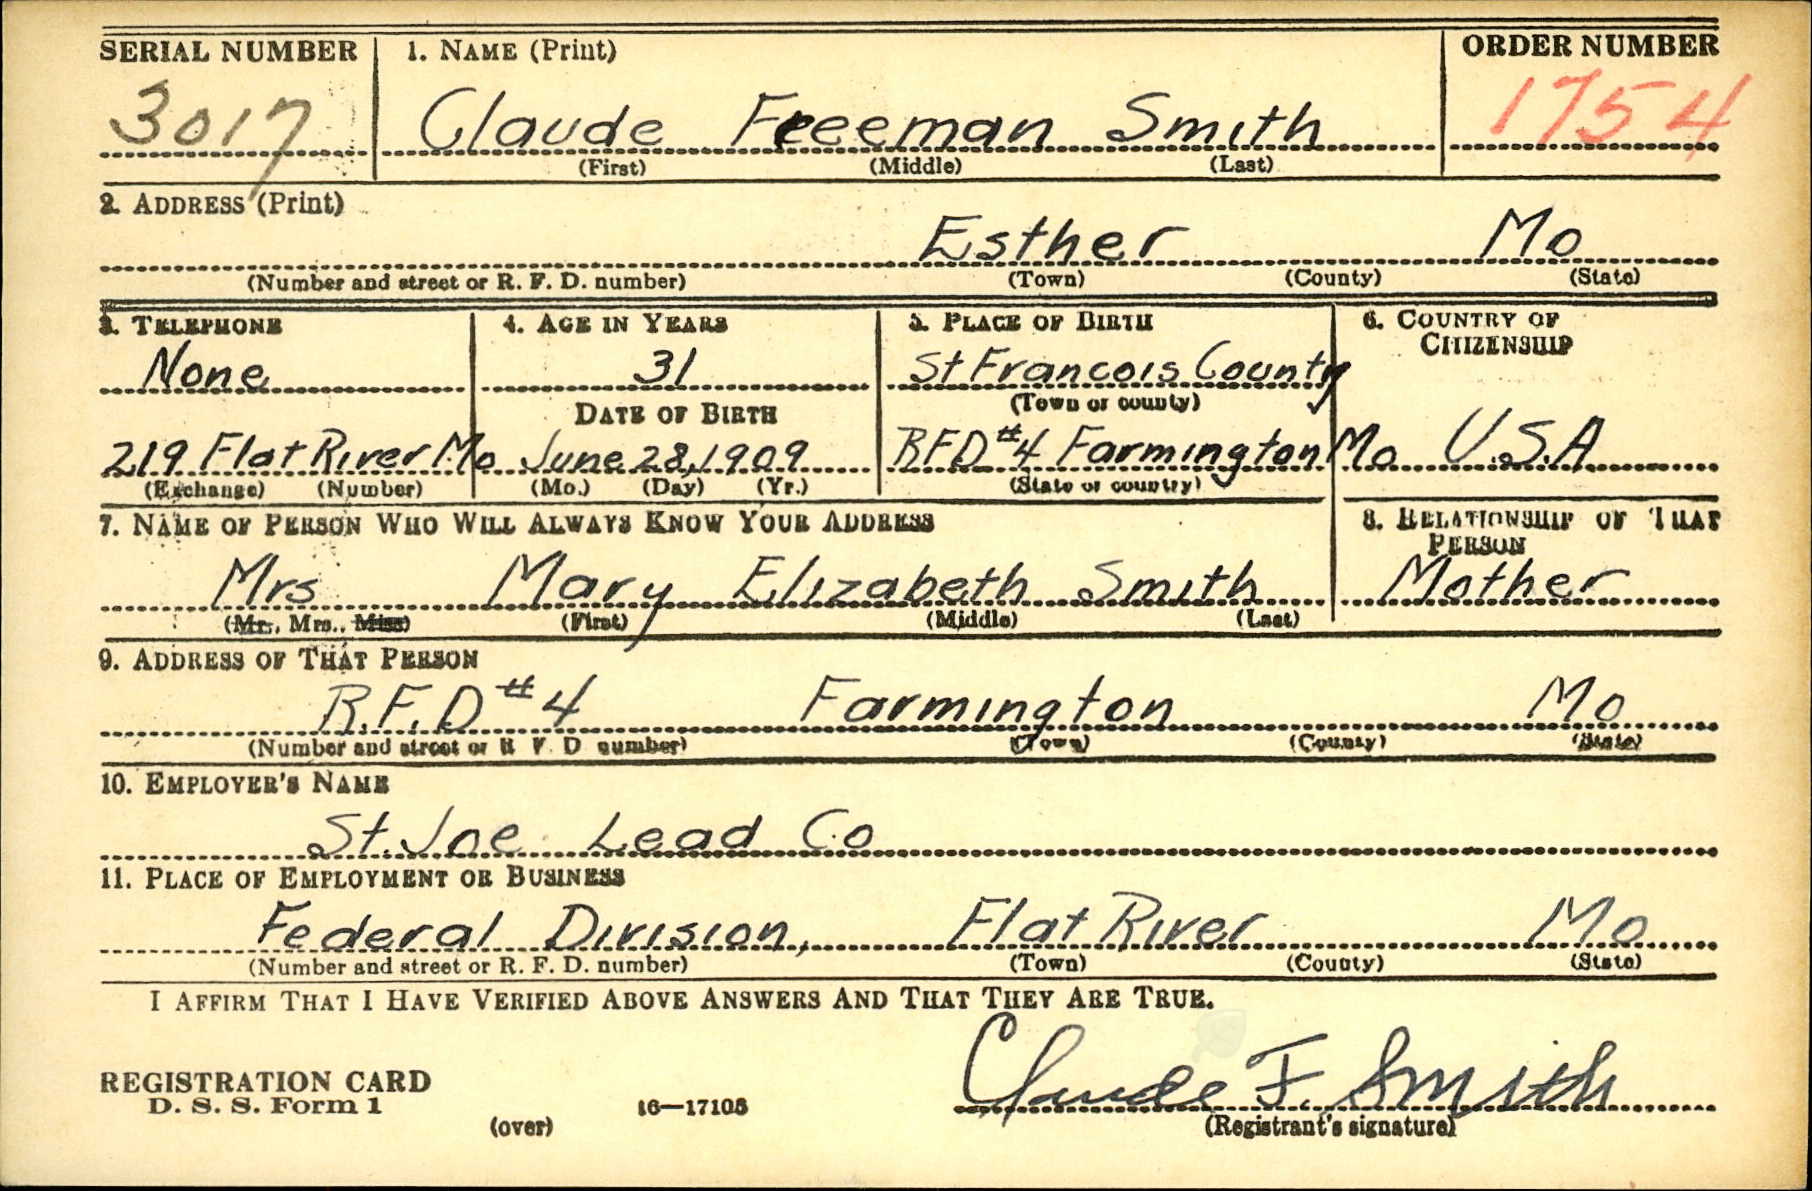 SERIAL NUMBER 1. NAME (Print) ORDER NUMBER
3017 Claude Freeman Smith 1754
(First) (Middle) (Last)
2. ADDRESS (Print)
Esther Mo
(Number and street or R. F. D. number) (Town) (County) (State)
3. TELEPHONE 4. AGE IN YEARS 5. PLACE OF BIRTH 6. COUNTRY OF
CITIZENSHIP
None 31 St Francois County
(Town or county)
DATE OF BIRTH
219 Flat River Mo June 28, 1909 RFD #4 Farmington Mo U.S.A
(Exchange) (Number) (Mo.) (Day) (Yr.) (State or country)
7. NAME OF PERSON WHO WILL ALWAYS KNOW YOUR ADDRESS 8. RELATIONSHIP OF THAT
PERSON
Mrs Mary Elizabeth Smith Mother
(Mr., Mrs., Miss) (First) (Middle) (Last)
9. ADDRESS OF THAT PERSON
R.F.D #4 Farmington Mo
(Number and street or R. F. D. number) (Town) (County) (State)
10. EMPLOYER'S NAME
St. Joe Lead Co
11. PLACE OF EMPLOYMENT OR BUSINESS
Federal Division, Flat River Mo
(Number and street or R. F. D. number) (Town) (County) (State)
I AFFIRM THAT I HAVE VERIFIED ABOVE ANSWERS AND THAT THEY ARE TRUE.
Claude F. Smith
REGISTRATION CARD
D. S. S. Form 1 16—17105
(over) (Registrant's signature)